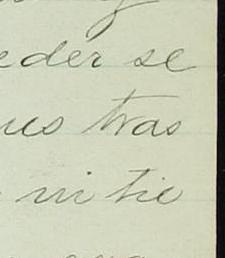 eder se
ues tras
ni tie